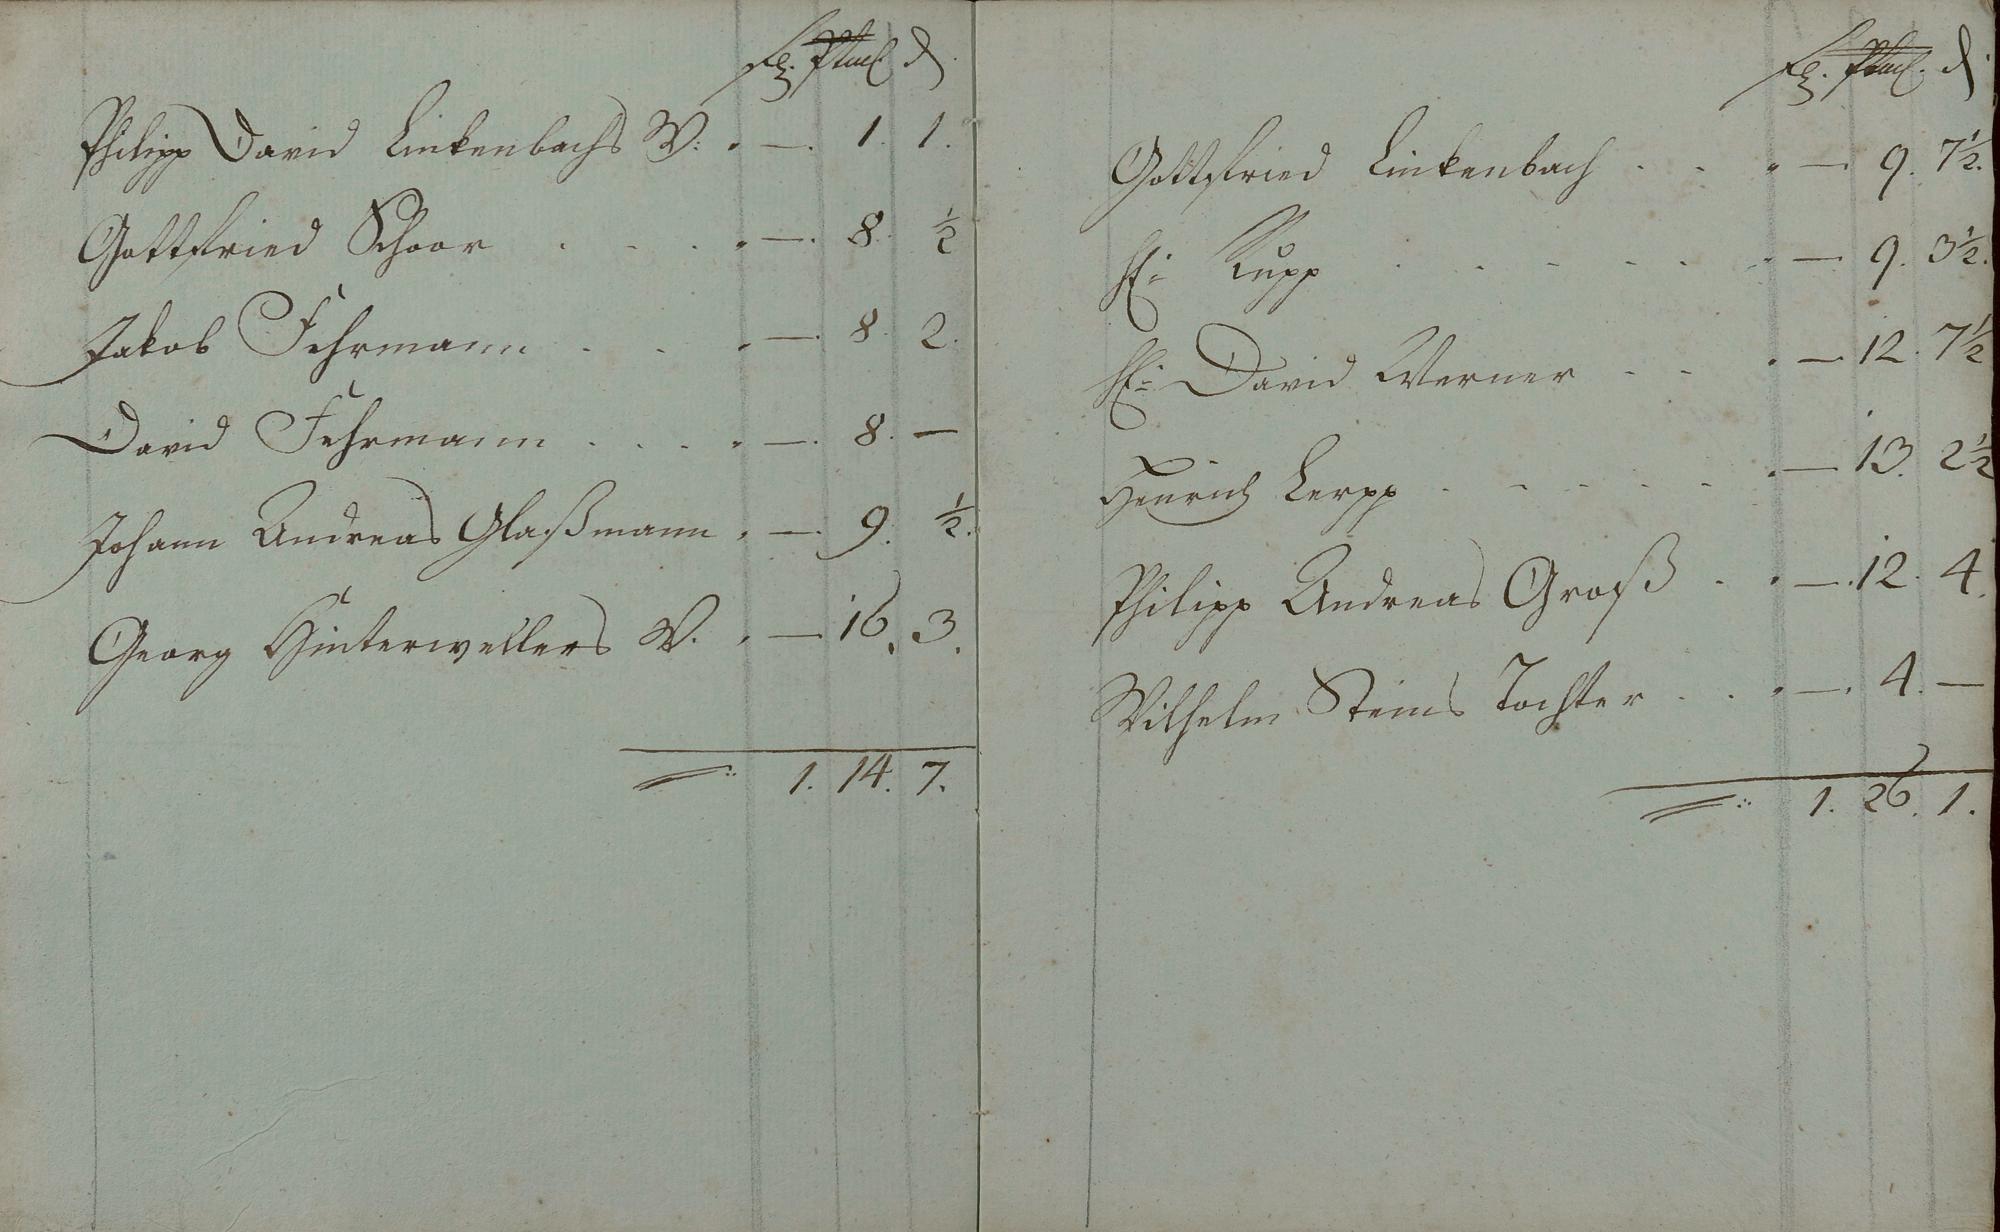 d
Philipp David Linkenbachs W: . — . 1. 1.
Gottfried Schoor . . . . — . 8. ½
Jakob Fehrmann . . . — . 8. 2.
David Fehrmann . . . . — . 8. —
Johann Andreas Glaßmann . — . 9. ½.
Georg Hinterwellers W. . — 16. 3.
1. 14. 7.
d
Gottfried Linkenbach . . . — 9. 7½.
Rupp . . . . . . — 9. 3½.
David Werner . . . — 12. 7½
Henrich Lerpp . . . . . . — 13. 2½
Philipp Andreas Groß . . — . 12. 4.
Wilhelm Steins Tochter . . . — . 4. —
1. 26. 1.